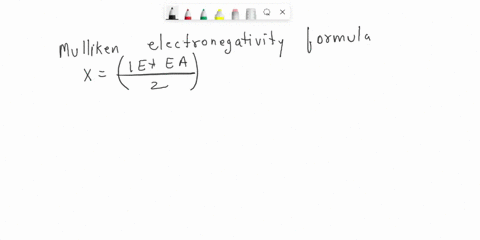 Mulliken electronegativity formula
X = (IE + EA / 2)